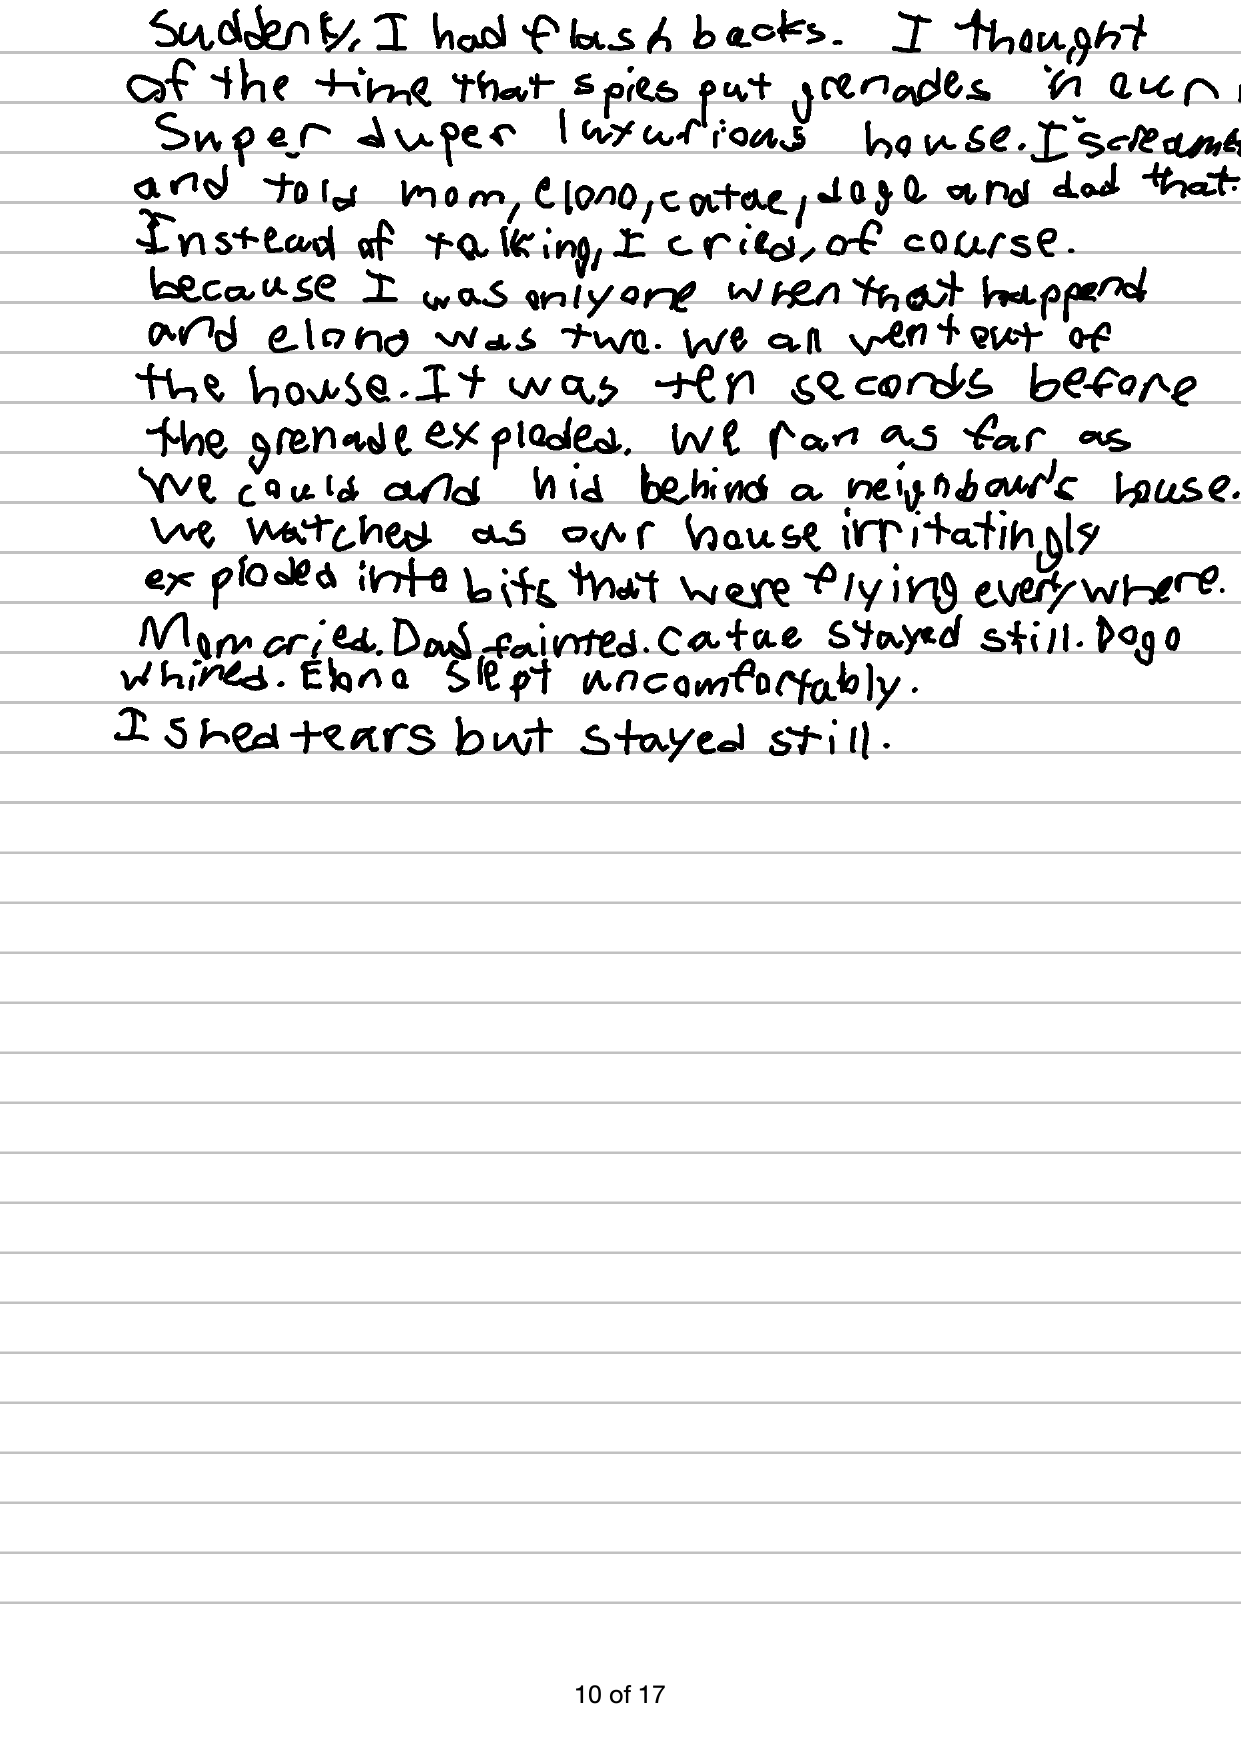 Suddenly, I had flash backs. I thought
of the time that spies put grenades in our
Super duper luxurious house. I screame
and told mom, elono, catae, dogo and dad that.
Instead of talking, I cried, of course.
because I was only one when that happend
and elono was two. We all went out of
the house. It was ten seconds before
the grenade exploded. We ran as far as
We could and hid behind a neighbour's house.
We watched as our house irritatingly
exploded into bits that were flying everywhere.
Mom cried. Dad fainted. Catae stayed still. Dogo
whined. Elono slept uncomfortably.
I shed tears but stayed still.
10 of 17